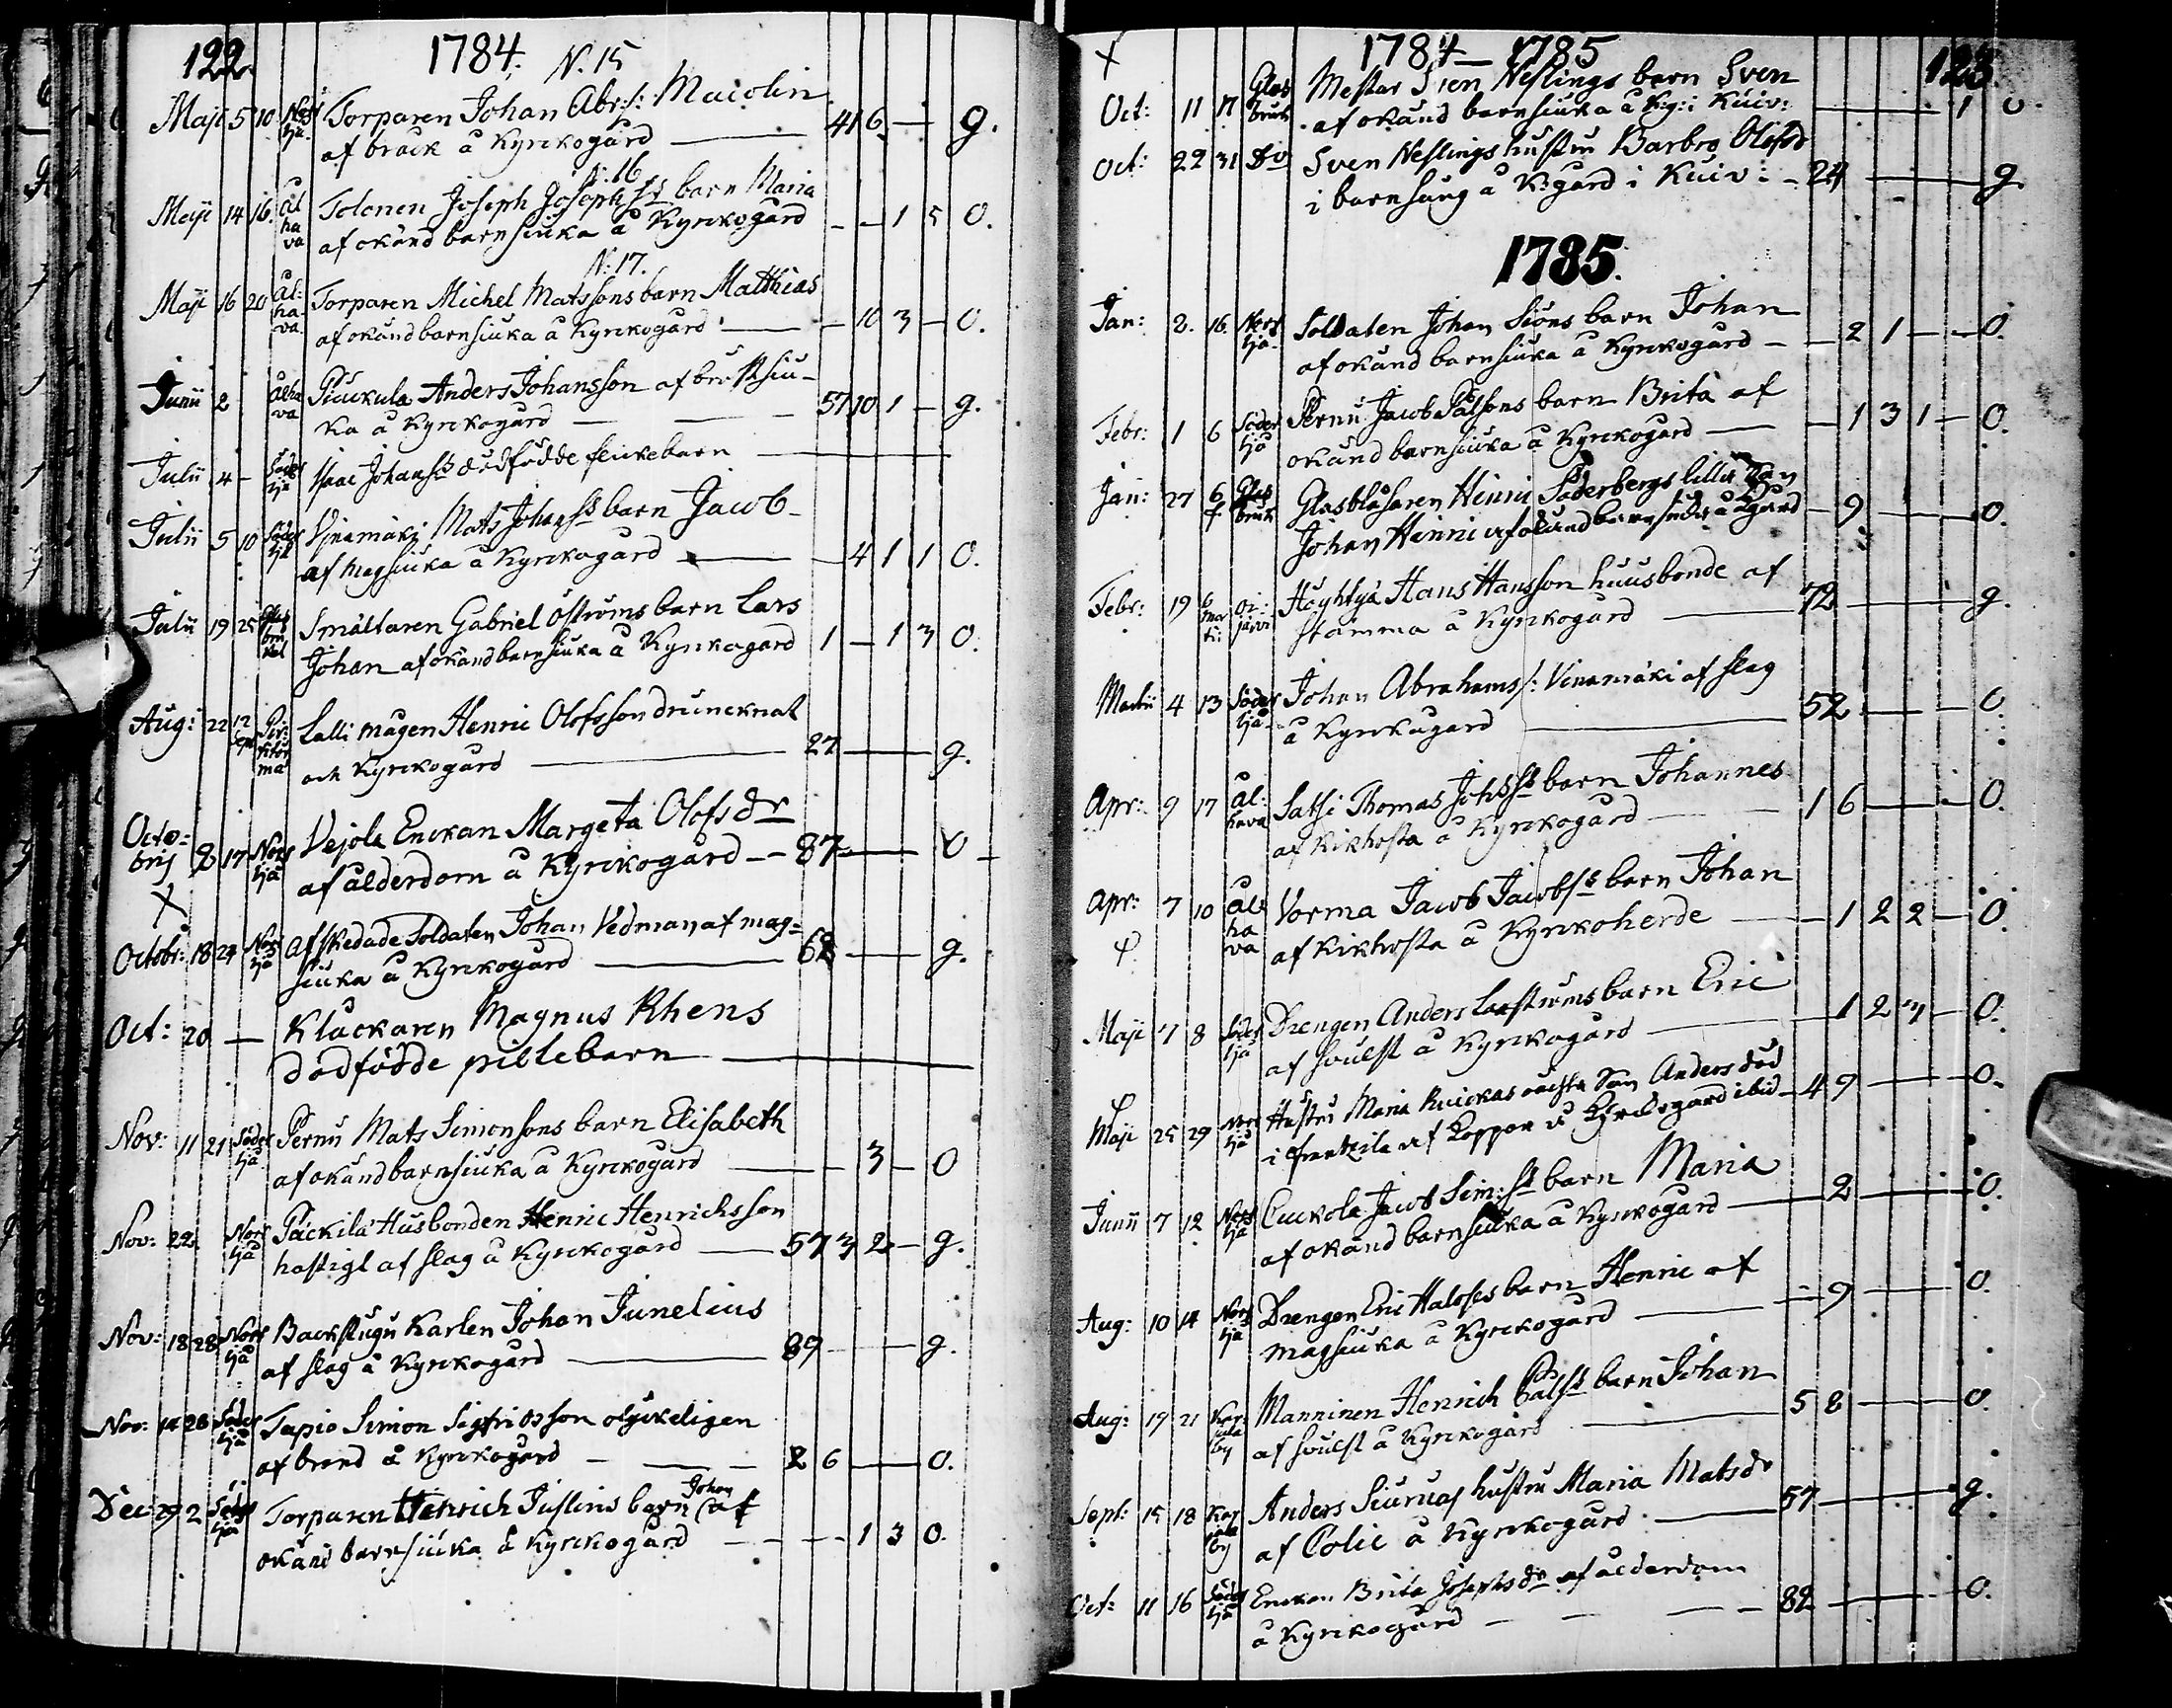 122. 1784. N. 15
Maji 5 10 Norr Torparen Johan Abr:s: Maiolin
tjä. af bräck å Kyrckogård 41 6 — g.
N: 16
Maji 14 16. Al Tolonen Joseph Josephss barn Maria
ha va af okänd barnsiuka å Kyrckogård — — 1 5 0.
N: 17.
Maji 16 20 Al: Torparen Michel Matssons barn Matthias
ha- va af okänd barnsiuka å Kyrckogård — 10 3 — 0.
Junii 2 Alha Piuckula Anders Johansson af bröstsiu-
va ka å Kyrckogård 57 10 1 — g.
Julii 4 — Söder tjä Isaac Johanss dödfödde flickebarn
Julii 5 10 Söder Vjnamäki Mats Johanss barn Jacob
tjä af magsiuka å Kyrckogård — 4 1 1 0.
Julii 19 25 Glas Smältaren Gabriel Öströms barn Lars
bru ket Johan af okänd barnsiuka å Kyrckogård 1 — 1 3 0.
Aug: 22 12 Sept Lalli mågen Henric Olofsson druncknat
och Kyrckogård 27 g.
Octo-
bris 8 17 Norr Vejola Enckan Margeta Olofsdr
tjä af ålderdom å Kyrckogård — 87 0
X
Octobr: 18 24 Norr Afskedade Soldaten Johan Vedman af mag-
tjä siuka å Kyrckogård 62 g.
Oct: 20 — Klockaren Magnus Rhens
dödfödde piltebarn
Nov: 11 21 Söder Pernu Mats Simonsons barn Elisabeth
tjä af okänd barnsiuka å Kyrckogård — — 3 — 0
Nov: 22 Norr Päckilä Husbonden Henric Henrichsson
tjä hastigt af slag å Kyrckogård 57 3 2 — g.
Nov: 18 28 Norr Backstugu Karlen Johan Junelius
tjä af slag å Kyrckogård 89 g.
Nov: 14 28 Söder Tapio Simon Sigfridsson olyckeligen
tjä af brand å Kyrckogård 2 6 0.
Dec: 29 2 Söder Torparen Henrich Juslins barn Johan af
tjä okänd barnsiuka å Kyrckogård — — 1 3 0.
X 1784 — 1785 123
Oct: 11 17 Glas Mestar Sven Neslings barn Sven
bruk af okänd barnsiuka å K:g: i Kuiv: 1 0.
Oct: 22 31 Do Sven Neslings hustru Barbro Olofsdr
i barnsäng å K:gård i Kuiv: 24 g.
1785.
Jan: 2. 16. Norr Soldaten Johan Sions barn Johan
tjä. af okänd barnsiuka å Kyrckogård — — 2 1 — 0.
Febr: 1 6 Söder Pernu Jacob Pålsons barn Brita af
tjä okänd barnsiuka å Kyrckogård — 1 3 1 — 0.
Jan: 27 6 f. Glas Glasblåsaren Henric Söderbergs lilla Son
bruk Johan Henric af okänd barnsiuka å Kgård — 9 0.
Febr: 19 6 Oi: Höyhtyä Hans Hansson huusbonde af
mar ti: järvi stämma å Kyrckogård 72 g.
Martii 4 13 Söder Johan Abrahams/: Vinamäki af slag
tjä å Kyrckogård 52 0.
Apr: 9 17 Al: Satsi Thomas Johss barn Johannes
hava af kikhosta å Kyrckogård 1 6 0.
Apr: 7 10 Al Vorma Jacob Jacobss barn Johan
ha va af kikhosta å Kyrckoherde — 1 2 2 — 0.
Maji 7 8 Söder Drengen Anders Laaströms barn Eric
tjä af svulst å Kyrckogård 1 2 3 — 0.
Maji 25 29 Norr Hustru Maria Ruickas Son Anders död
tjä i Frantzila af koppor å Kyrckogård ibid 4 9 0.
Junii 7 12 Norr Cuckola Jacob Sim:ss barn Maria
tjä af okänd barnsiuka å Kyrckogård 2 0.
Aug: 10 14 Norr Drengen Eric Haloses barn Henric af
tjä magsiuka å Kyrckogård — 9 0.
Aug: 19 21 Kar Manninen Henrich Pålss barn Johan
jala by af svulst å Kyrckogård 5 8 0.
Sept: 15 18 Kar Anders Siuruas hustru Maria Matsdr
jala by af Colic å Kyrckogård 57 g.
Oct: 11 16 Söder Enckan Brita Josephsdr af ålderdom
tjä å Kyrckogård 82 0.